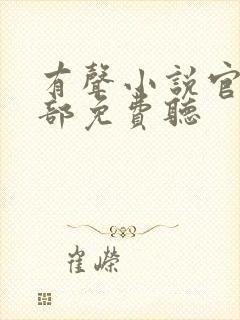 有聲小說官
部免費聽
崔嶸